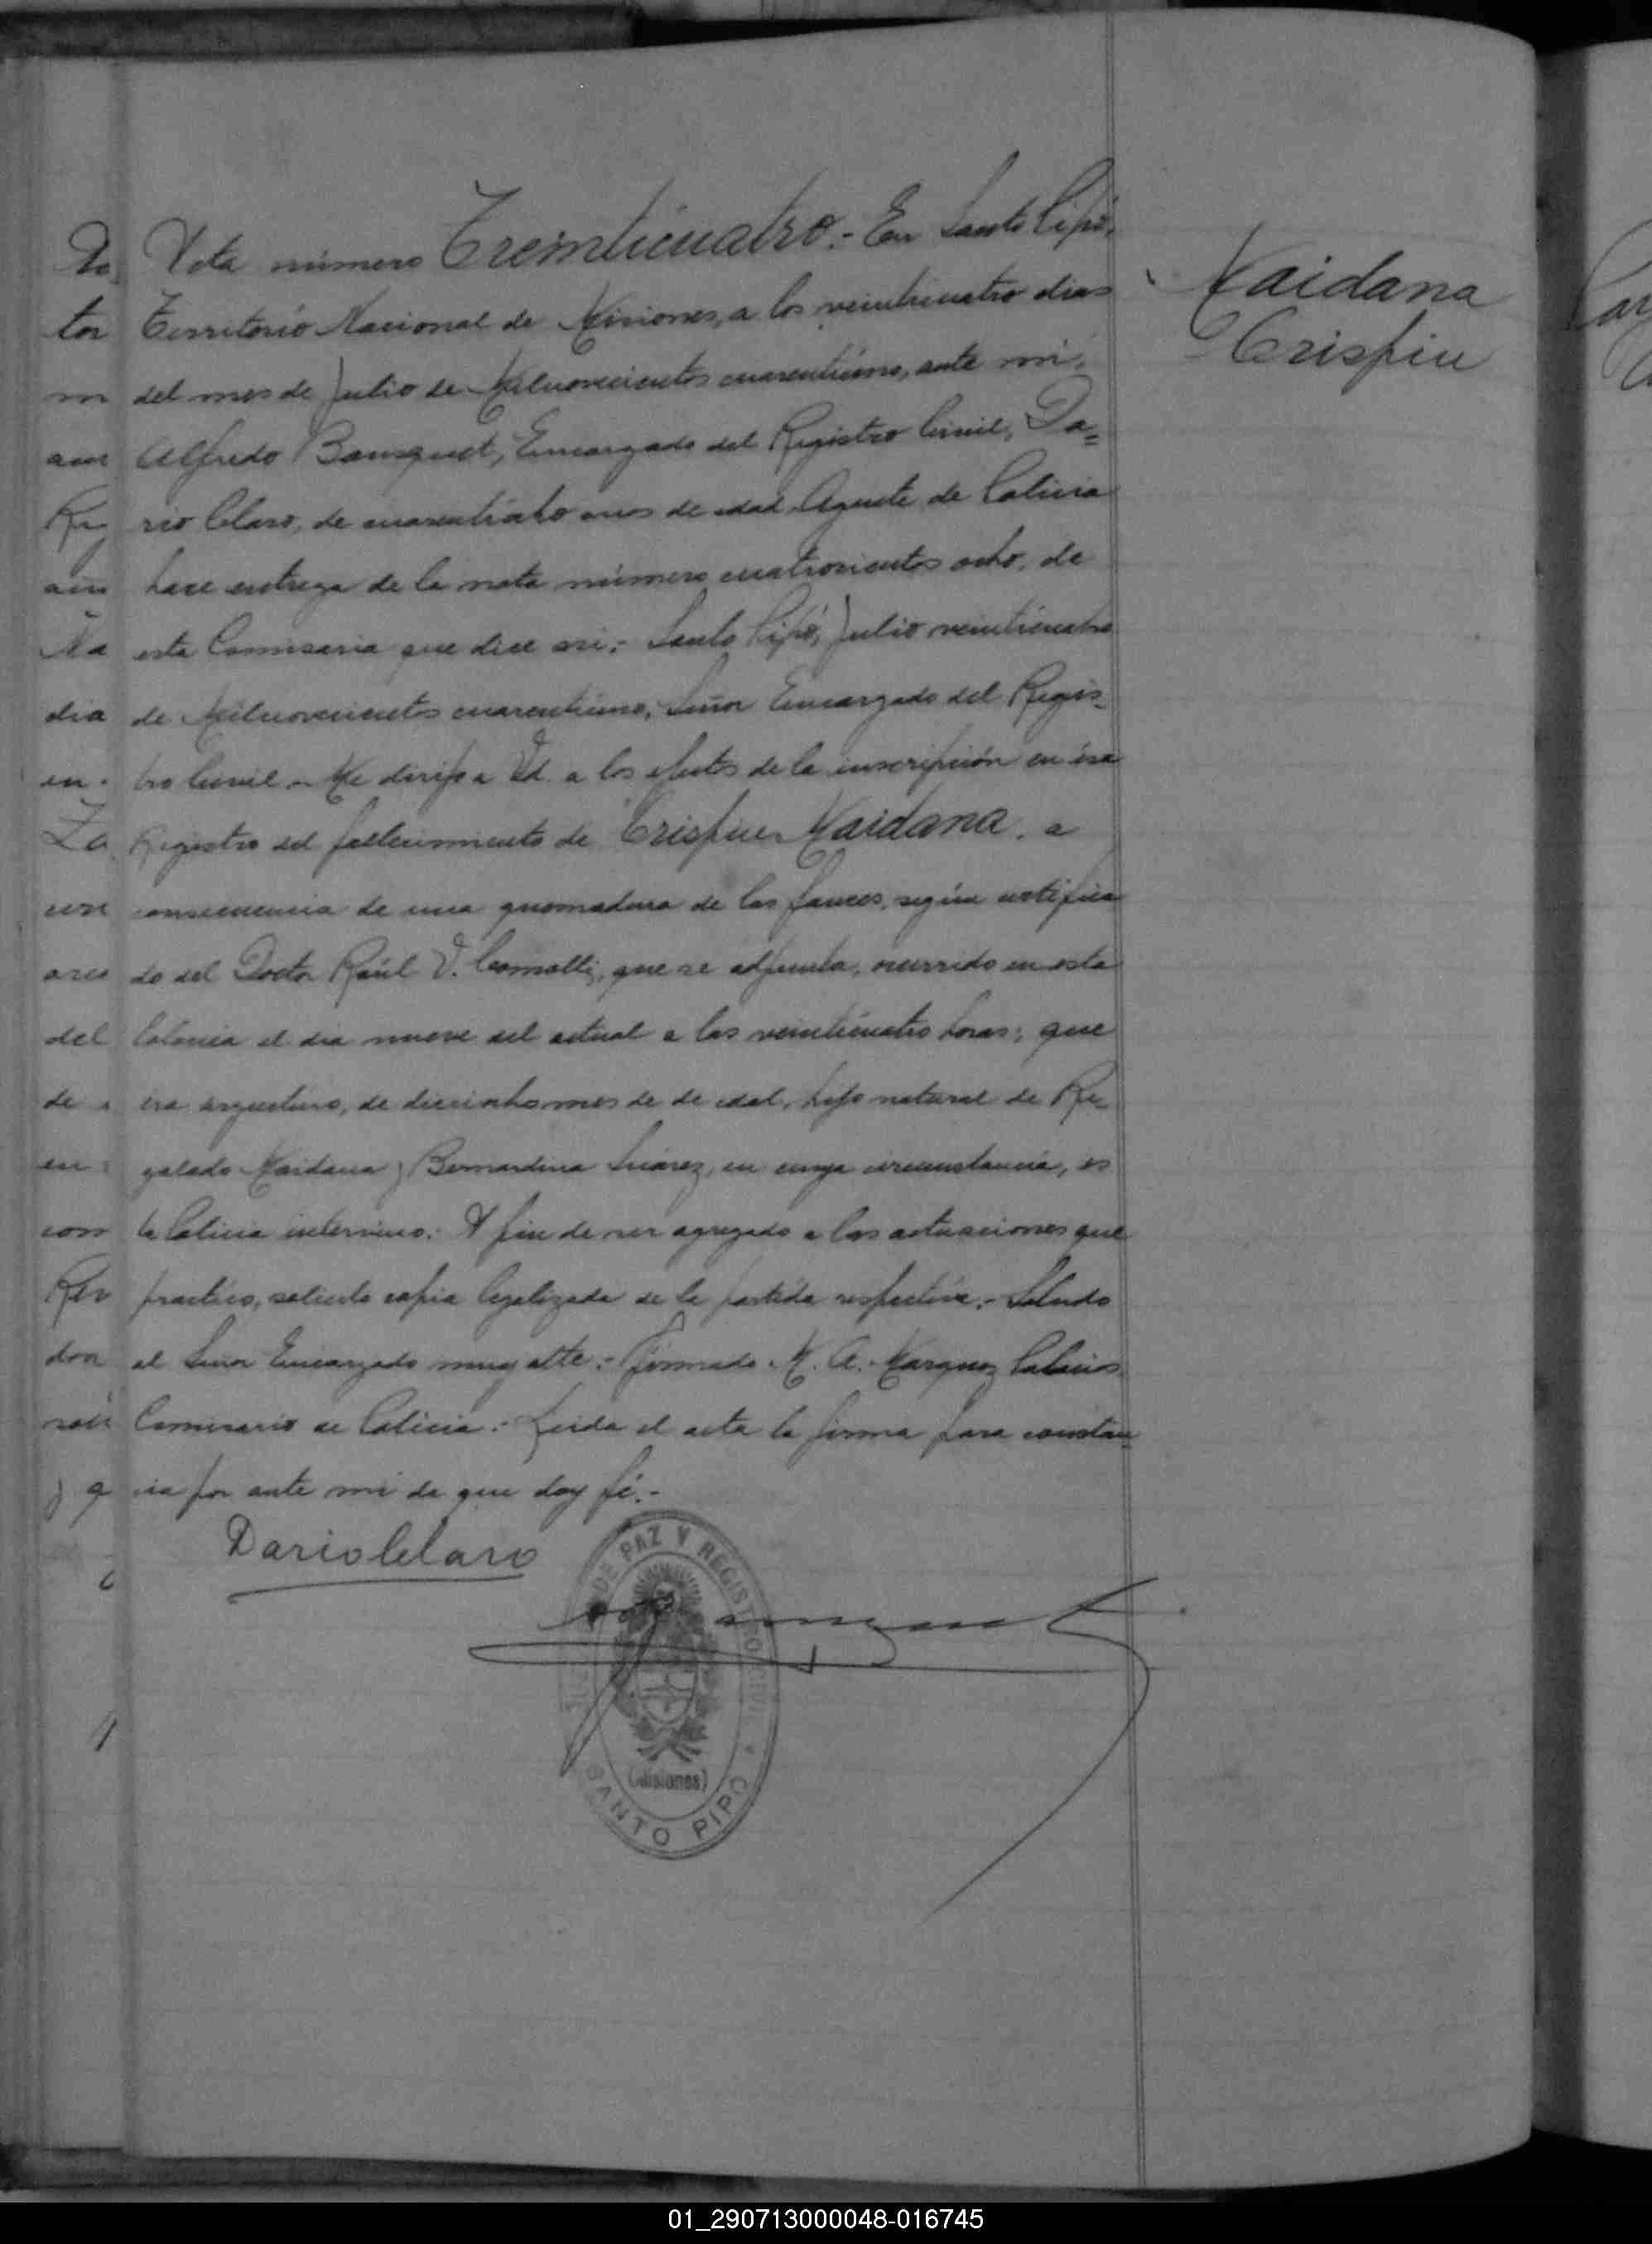 Acta número Treinticuatro.- En Santo Pipó,
Territorio Nacional de Misiones, a los veinticuatro dias
del mes de Julio de Milnovecientos cuarentiuno, ante mi,
Alfredo Bousquet, Encargado del Registro Civil, Da=
rio Claro, de cuarentiocho años de edad Agente de Policia
hace entrega de la nota número cuatrocientos ocho, de
esta Comisaria que dice asi:- Santo Pipó, Julio veinticuatro
de Milnovecientos cuarentiuno, Señor Encargado del Regis-
tro Civil.- Me dirijo a Vd. a los efectos de la inscripción en ése
Registro del fallecimiento de Crispin Maidana, a
consecuencia de una quemadura de las fauces, según certifica
do del Doctor Raúl V. Comolli, que se adjunta, ocurrido en esta
Colonia el dia nueve del actual a las veinticuatro horas; que
era argentino, de dieciocho meses de edad, hijo natural de Re-
galado Maidana y Bernardina Suárez, en cuya circunstancia, es
ta Policia intervino. A fin de ser agregado a las actuaciones que
practico, solicito copia legalizada de la partida respectiva.- Saludo
al Señor Encargado muy atte:- firmado M. A. Marquez Palacios
Comisario de Policia:- Leida el acta la firma para constan
cia por ante mi de que doy fé.-
Dario Claro
Maidana
Crispin
DE PAZ Y REGISTRO CIVIL
(Misiones)
SANTO PIPO
01_290713000048-016745